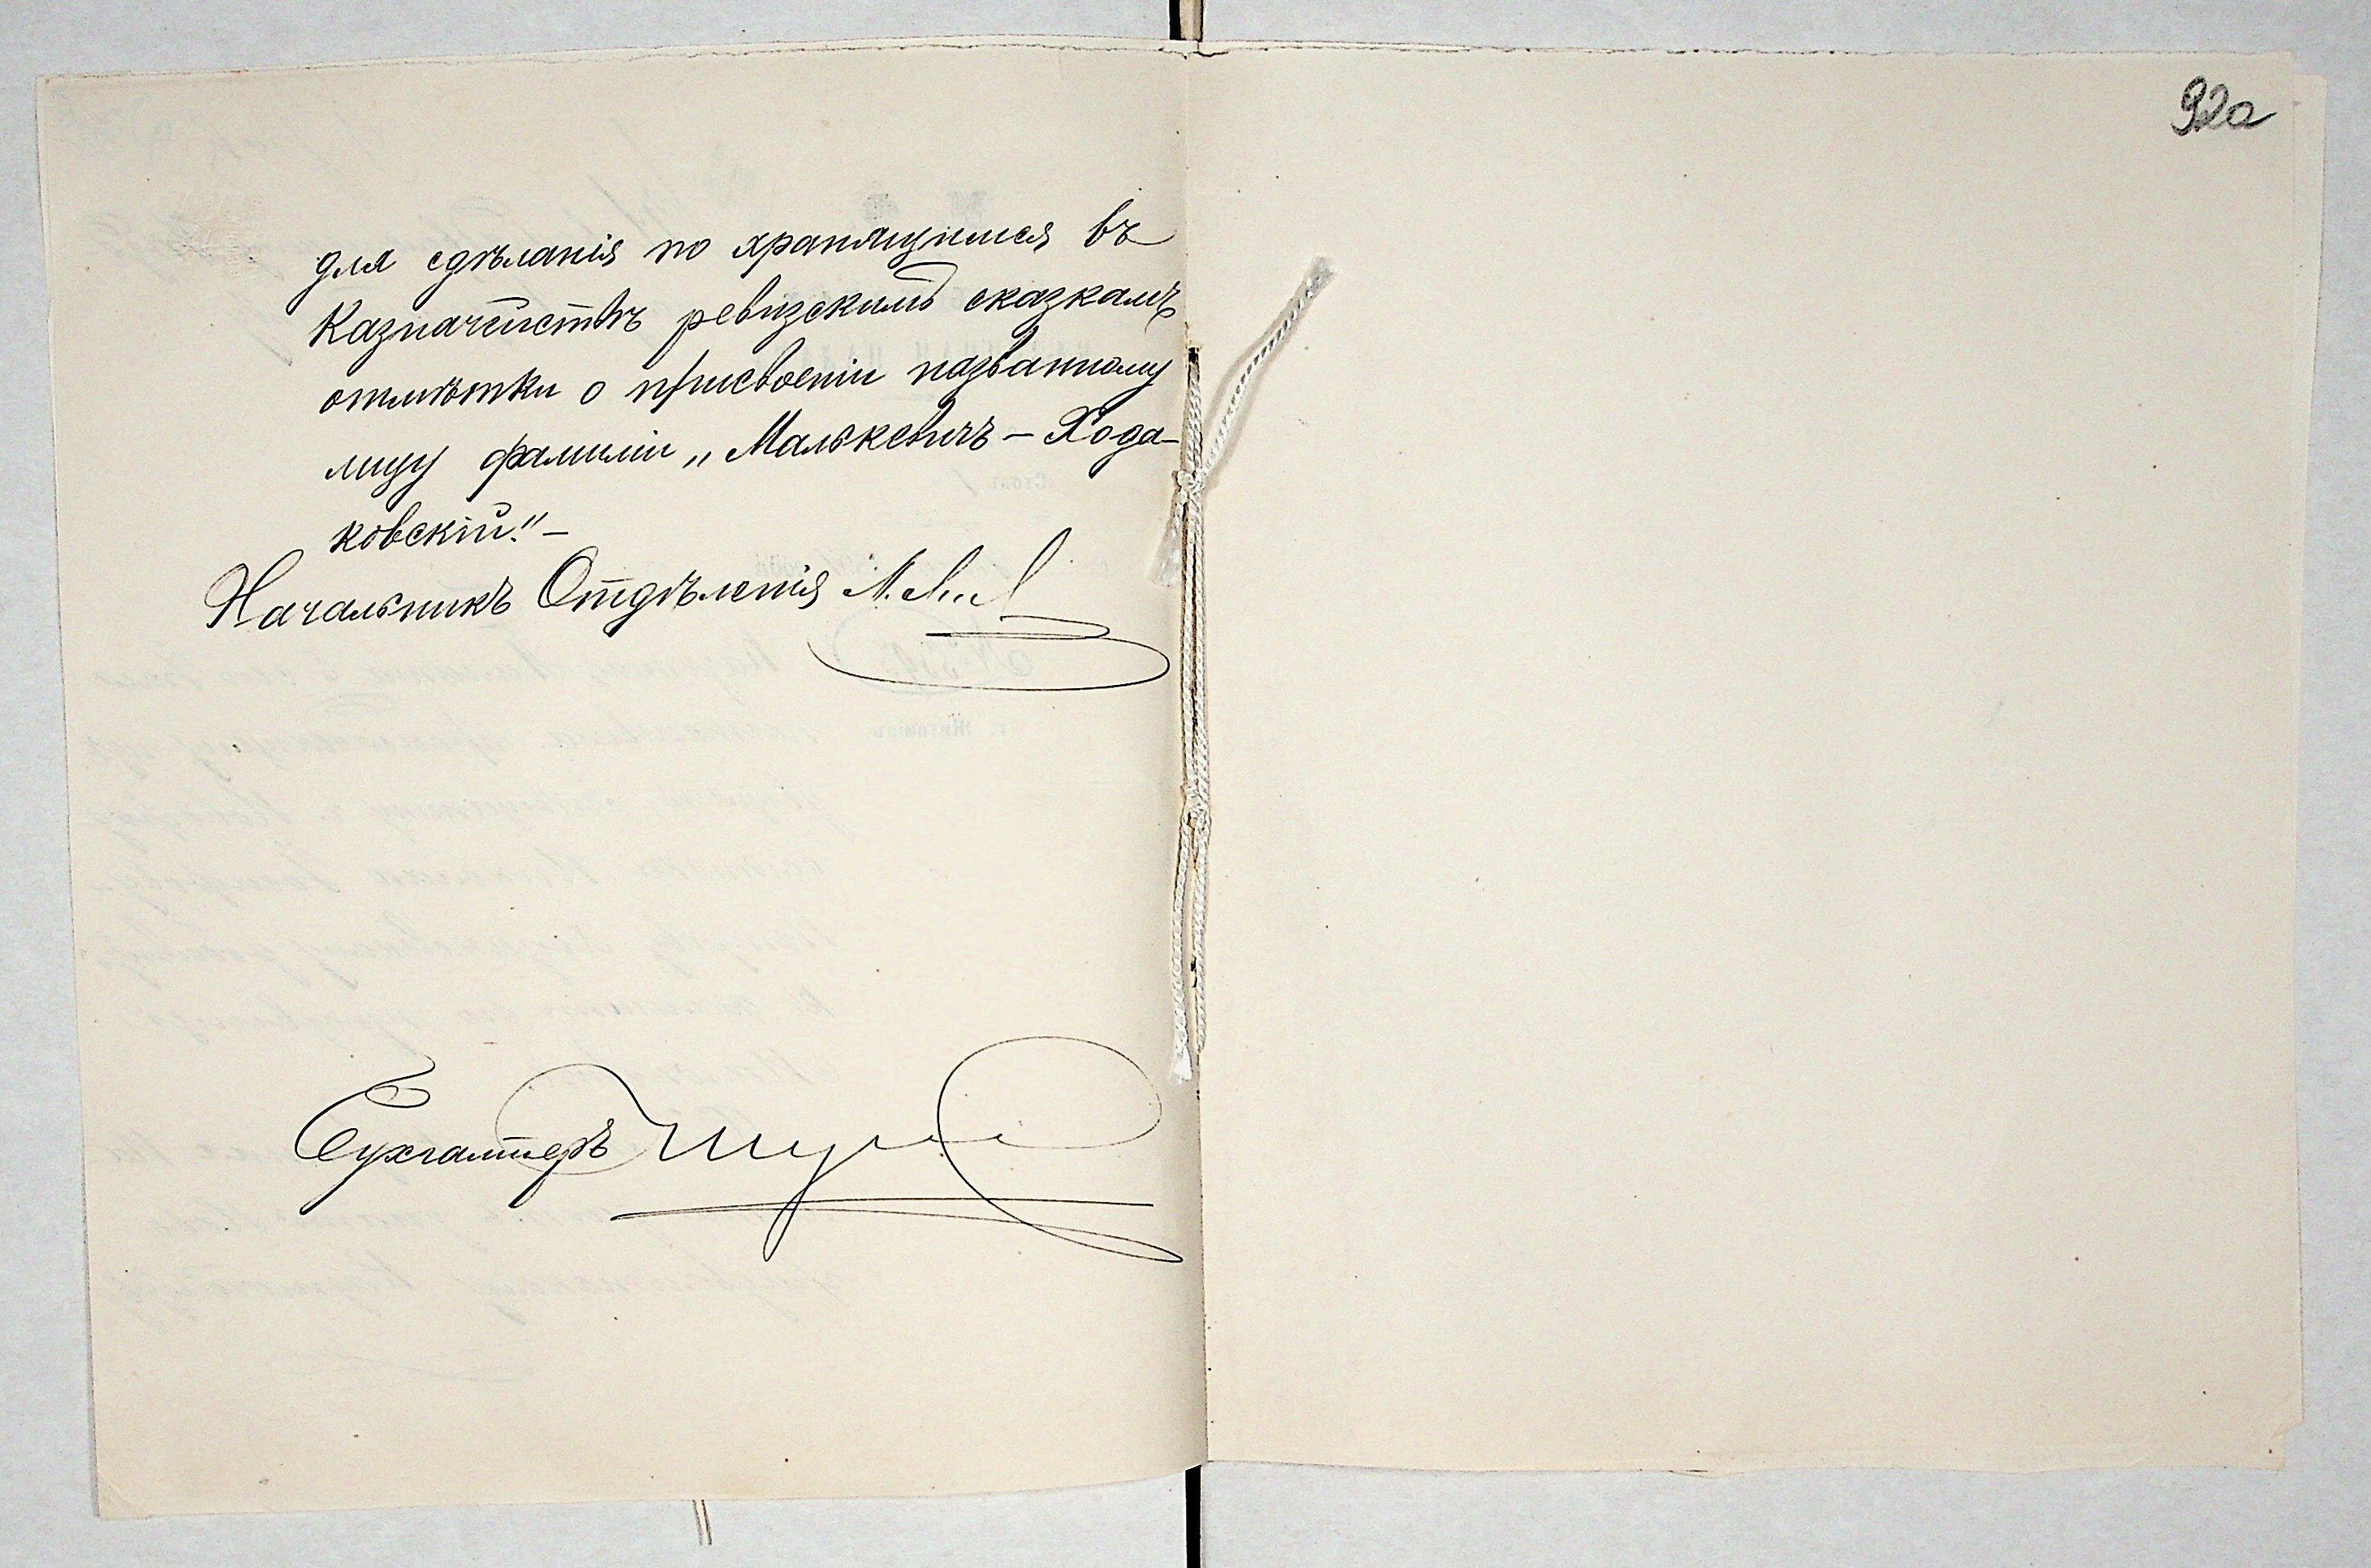 92а
для сдѣланія по хранящимся въ
Казначействѣ ревизскимъ сказкамъ
отмѣтки о присвоеніи названному
лицу фамиліи „Малькевичъ — Хода-
ковскій." —
Начальникъ Отдѣленія
Бухгалтеръ